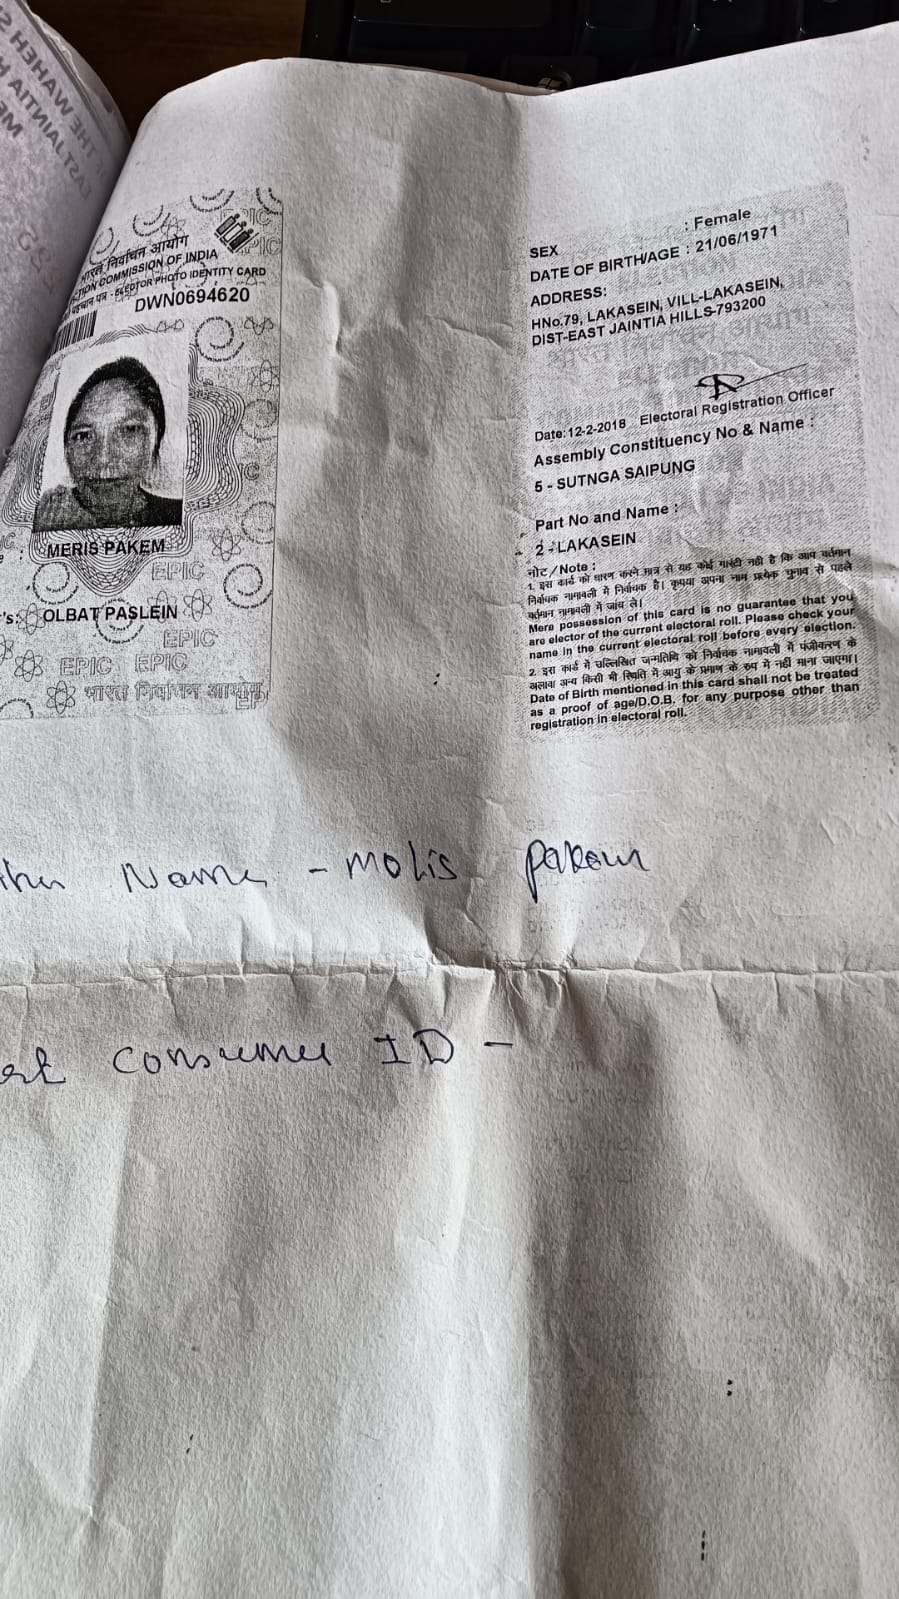 THE WAHEH S
EAST JAINTIA H
ME
भारत निर्वाचन आयोग
TION COMMISSION OF INDIA
पहचान पत्र - ELECTOR PHOTO IDENTITY CARD
DWN0694620
EPIC
EPIC
MERIS PAKEM
EPIC
's: OLBAT PASLEIN
EPIC
EPIC EPIC
भारत निर्वाचन आयोग
EP
SEX : Female
DATE OF BIRTH/AGE : 21/06/1971
ADDRESS:
HNo.79, LAKASEIN, VILL-LAKASEIN,
DIST-EAST JAINTIA HILLS-793200
Date:12-2-2018 Electoral Registration Officer
Assembly Constituency No & Name :
5 - SUTNGA SAIPUNG
Part No and Name :
2 - LAKASEIN
नोट/Note :
1. इस कार्ड को धारण करने मात्र से यह कोई गारंटी नही है कि आप वर्तमान
निर्वाचक नामावली में निर्वाचक है। कृपया अपना नाम प्रत्येक चुनाव से पहले
वर्तमान नामावली में जांच ले।
Mere possession of this card is no guarantee that you
are elector of the current electoral roll. Please check your
name in the current electoral roll before every election.
2. इस कार्ड में उल्लिखित जन्मतिथि को निर्वाचक नामावली में पंजीकरण के
अलावा अन्य किसी भी स्थिति में आयु के प्रमाण के रुप में नही माना जाएगा।
Date of Birth mentioned in this card shall not be treated
as a proof of age/D.O.B. for any purpose other than
registration in electoral roll.
ther Name - Molis Pakem
Consumer ID -